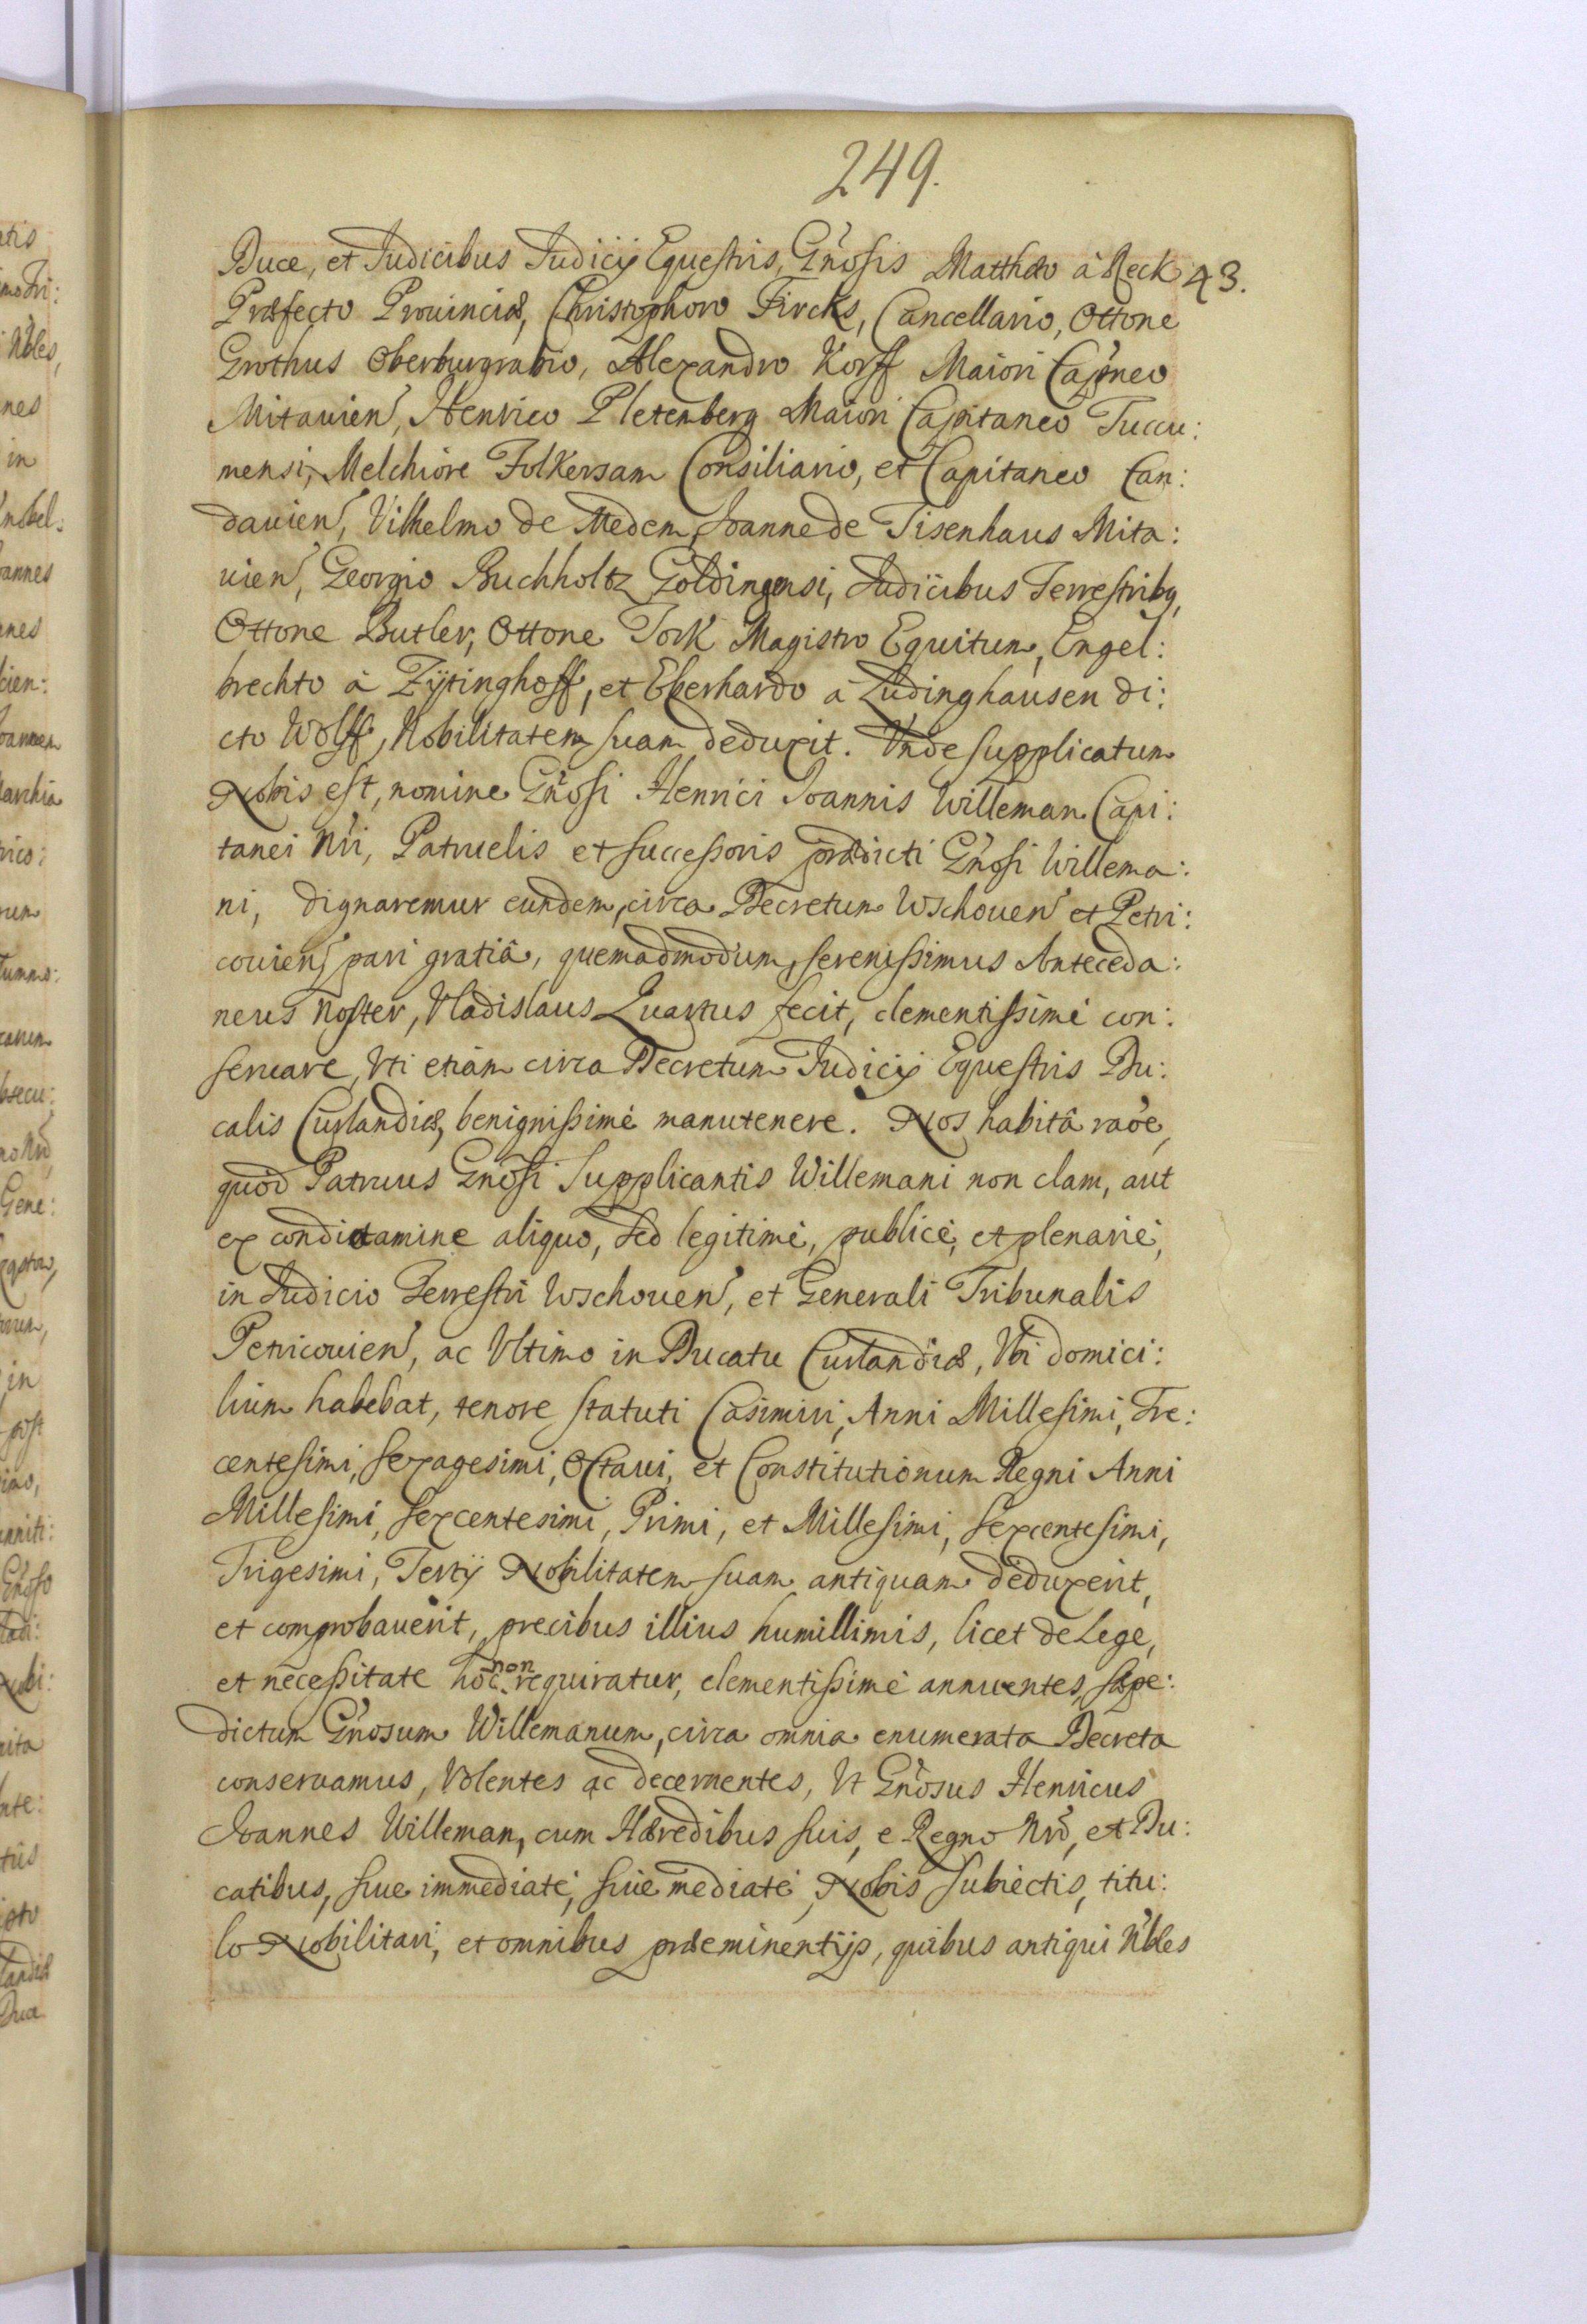 249.
43.
Duce, et Judicibus Judicij Equestris, Gnosis Matthæo à Reck
Præfecto Prouinciæ, Christophoro Fircks, Cancellario, Ottone
Grothus Oberburgrabio, Alexandro Korff Maiori Capneo
Mitauien, Henrico Pletemberg Maiori Capitaneo Tuccu:
mensi, Melchiore Folkersam Consiliario, et Capitaneo Can:
dauien, Vilhelmo de Medem, Joanne de Tisenhaus Mita:
uien, Georgio Buchholtz Goldingensi, Judicibus Terrestribq,
Ottone Butler, Ottone Tork Magistro Equitum, Engel:
brechto à Fÿtinghoff, et Eberhardo à Ludinghausen di:
cto Wolff, Nobilitatem suam deduxit. Vnde supplicatum
Nobis est, nomine Gnosi Henrici Joannis Willeman Capi:
tanei Nri, Patruelis et successoris prædicti Gnosi Willema:
ni, dignaremur eundem, circa Decretum Wschouen et Petri:
couien, pari gratiâ, quemadmodum, serenissimus Anteceda:
neus Noster, Vladislaus Quartus fecit, clementissimè con:
seruare, Vti etiàm circa Decretum Judicij Equestris Du:
calis Curlandiæ, benignissimè manutenere. Nos habitâ raõe,
quod Patruus Gnosi Supplicantis Willemani non clam, aut
ex condictamine aliquo, sed legitimè, publicè, et plenariè,
in Judicio Terrestri Wschouen, et Generali Tribunalis
Petricouien, ac Vltimo in Ducatu Curlandiæ, Vbi domici:
lium habebat, tenore statuti Casimiri, Anni Millesimi, Tre:
centesimi, sexagesimi, Octaui, et Constitutionum Regni Anni
Millesimi, sexcentesimi, Primi, et Millesimi, sexcentesimi,
Trigesimi, Tertij Nobilitatem suam antiquam deduxerit,
et comprobauerit, precibus illius humillimis, licet de Lege,
et necessitate hoc non requiratur, clementissimè annuentes, sæpe:
dictum Gnosum Willemanum, circa omnia enumerata Decreta
conseruamus, Volentes ac decernentes, Vt Gnosus Henricus
Joannes Willeman, cum Hæredibus suis, e Regno Nro, et Du:
catibus, siue immediatè, siue mediatè, Nobis subiectis, titu:
lo Nobilitari, et omnibus præeminentijs, quibus antiqui Nbles